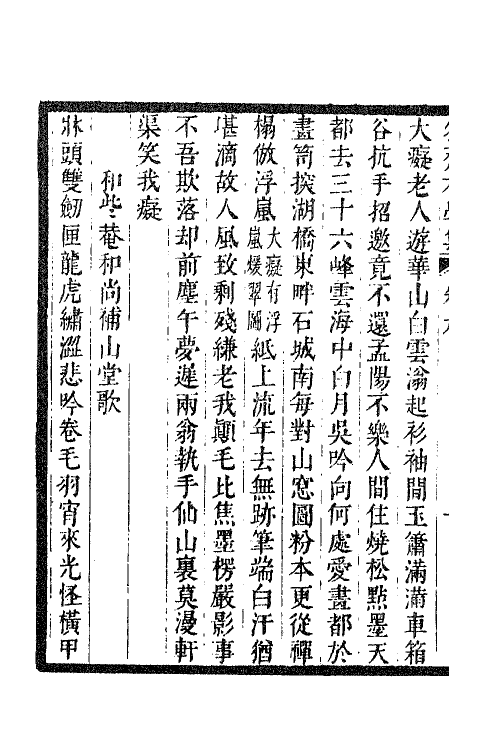 大癡老人遊華山白雲滃起衫袖間玉簫滿滿車箱
谷抗手招邀竟不還孟陽不樂人間住燒松點墨天
都去三十六峰雲海中白月吳吟向何處愛畫都於
畫笥探湖橋東畔石城南每對山窓圖粉本更從禪
榻倣浮嵐大癡有浮嵐煖翠圖紙上流年去無跡筆端白汗猶
堪滴故人風致剩殘縑老我顚毛比焦墨楞嚴影事
不吾欺落却前塵午夢遲兩翁執手仙山裏莫漫軒
渠笑我癡
和些菴和尚補山堂歌
牀頭雙劒匣龍虎繡澀悲吟卷毛羽宵來光怪橫甲